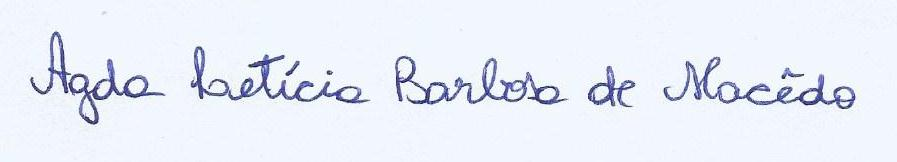 Agda Laetícia Barbosa de Macêdo